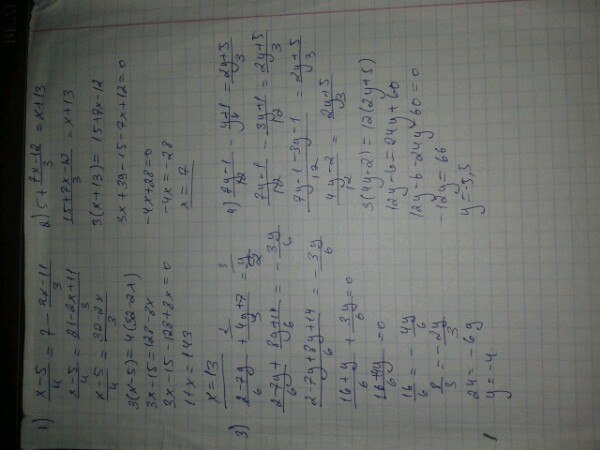 1) (x-5)/4 = 7 - (2x-11)/3
(x-5)/4 = (21-2x+11)/3
(x-5)/4 = (32-2x)/3
3(x-5)=4(32-2x)
3x-15=128-8x
3x-15-128+8x=0
11x=143
x=13
2) 5+(7x-12)/3 = x+13
(15+7x-12)/3 = x+13
3(x+13)=15+7x-12
3x+39-15-7x+12=0
-4x+28=0
-4x=-28
x=7
3) (2-7y)/6 + (4y+7)/3 = y/2
(2-7y)/6 + (8y+14)/6 = -3y/6
(2-7y+8y+14)/6 = -3y/6
(16+y)/6 + 3y/6 = 0
(16+4y)/6 = 0
16/6 = -4y/6
8/3 = -2y/3
24=-6y
y=-4
4) (7y-1)/12 - (y+1)/4 = (2y+5)/3
(7y-1)/12 - (3y+1)/12 = (2y+5)/3
(7y-1-3y-1)/12 = (2y+5)/3
(4y-2)/12 = (2y+5)/3
3(4y-2)=12(2y+5)
12y-6=24y+60
12y-6-24y-60=0
-12y=66
y=-5,5